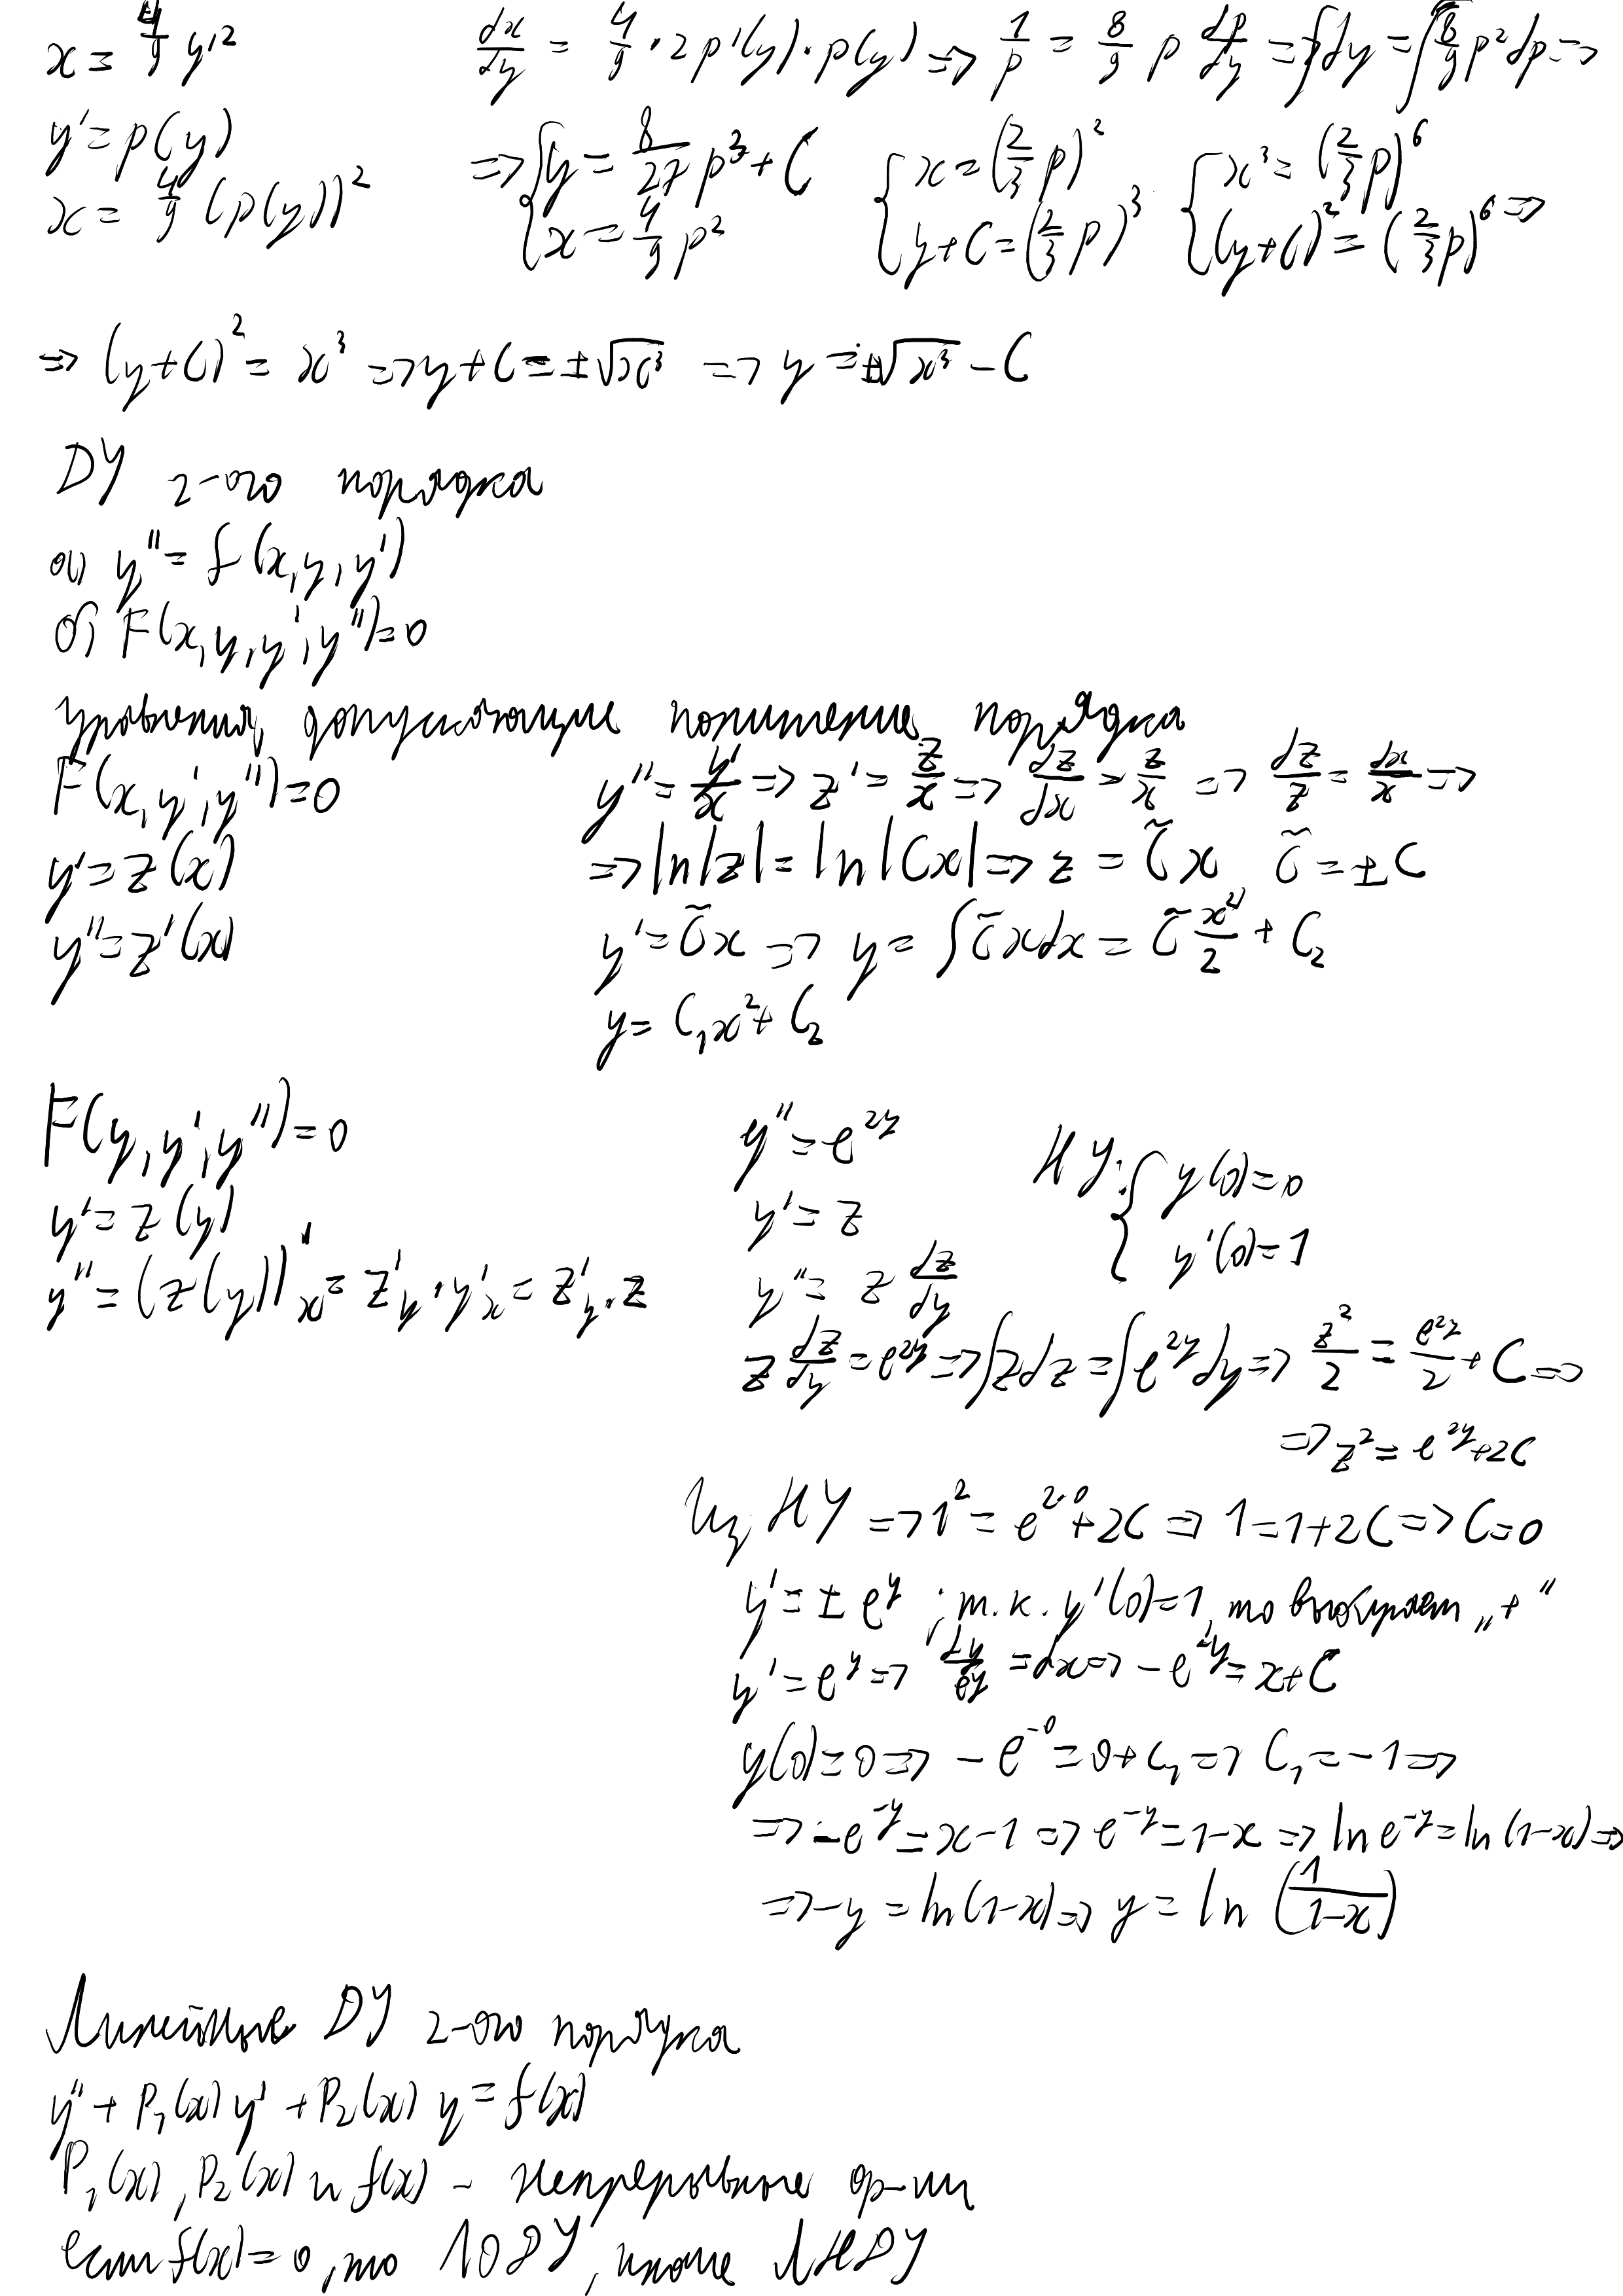 x = 4/9 y'²
dx/dy = 4/9 · 2p'(y)·p(y) => 1/p = 8/9 p dp/dy => ∫dy = ∫8/9 p² dp =>
y' = p(y)
x = 4/9 (p(y))²
=> { y = 8/27 p³ + C
x = 4/9 p²
{ x = (2/3 p)²
y + C = (2/3 p)³
{ x³ = (2/3 p)⁶
(y+C)² = (2/3 p)⁶ =>
=> (y+C)² = x³ => y+C = ±√x³ => y = ±√x³ - C
ДУ 2-ого порядка
а) y'' = f(x, y, y')
б) F(x, y, y', y'') = 0
Уравнения, допускающие понижение порядка
F(x, y', y'') = 0
y' = z(x)
y'' = z'(x)
y'' = y'/x => z' = z/x => dz/dx = z/x => dz/z = dx/x =>
=> ln|z| = ln|Cx| => z = C̃x C̃ = ±C
y' = C̃x => y = ∫C̃xdx = C̃ x²/2 + C₂
y = C₁x² + C₂
F(y, y', y'') = 0
y' = z(y)
y'' = (z(y))'ₓ = z'y · y'ₓ = z'y · z
y'' = e^2y
НУ: { y(0) = 0
y'(0) = 1
y' = z
y'' = z dz/dy
z dz/dy = e^2y => ∫zdz = ∫e^2y dy => z²/2 = e^2y/2 + C =>
=> z² = e^2y + 2C
Из НУ => 1² = e^2·0 + 2C => 1 = 1 + 2C => C = 0
y' = ± e^y ; т.к. y'(0) = 1, то выбираем „+"
y' = e^y => dy/e^y = dx => -e^-y = x + C
y(0) = 0 => -e^-0 = 0 + C₁ => C₁ = -1 =>
=> -e^-y = x - 1 => e^-y = 1 - x => ln e^-y = ln(1-x) =>
=> -y = ln(1-x) => y = ln (1/(1-x))
Линейные ДУ 2-ого порядка
y'' + P₁(x) y' + P₂(x) y = f(x)
P₁(x), P₂(x) и f(x) - непрерывные ф-ии
если f(x) = 0, то ЛОДУ, иначе ЛНДУ